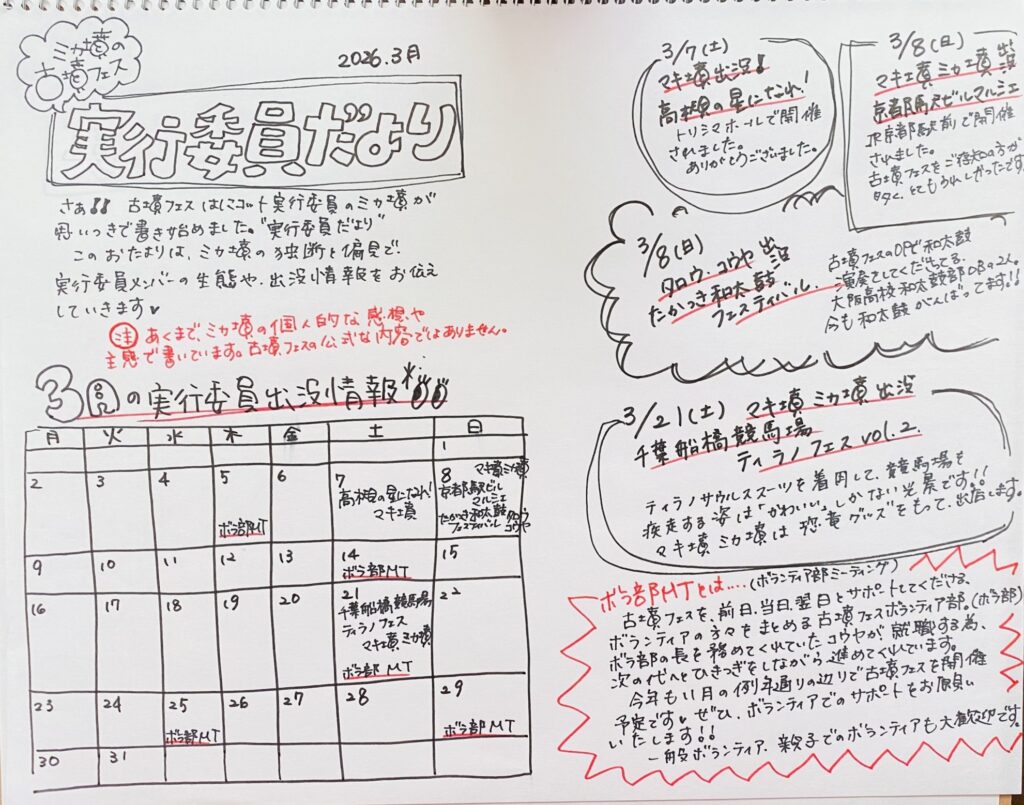 ミカ墳の
古墳フェス
2026.3月
実行委員だより
さぁ!! 古墳フェスはにコット実行委員のミカ墳が
思いつきで書き始めました。"実行委員だより"
このおたよりは、ミカ墳の独断と偏見で、
実行委員メンバーの生態や、出没情報をお伝え
していきます♥
注 あくまで、ミカ墳の個人的な感想や
主感で書いています。古墳フェスの公式な内容ではありません。
3月の実行委員出没情報
月 火 水 木 金 土 日
1
2 3 4 5 6 7 8
ボラ部MT
高根の星になれ!
マキ墳
マキ墳ミカ墳
京都駅ビル
マルシェ
たかつき和太鼓
フェスティバル
タロウ
コウヤ
9 10 11 12 13 14 15
ボラ部MT
16 17 18 19 20 21 22
千葉船橋競馬場
ティラノフェス
マキ墳 ミカ墳
ボラ部MT
23 24 25 26 27 28 29
ボラ部MT
ボラ部MT
30 31
3/7(土)
マキ墳出没!
高根の星になれ!
トリシマホールで開催
されました。
ありがとうございました。
3/8(日)
マキ墳 ミカ墳 出没
京都駅ビルマルシェ
JR京都駅前で開催
されました。
古墳フェスをご存知の方が
多く、とてもうれしかったです
3/8(日)
タロウ、コウヤ 出没
たかつき和太鼓
フェスティバル
古墳フェスのOPで和太鼓
演奏をしてくだもてる、
大阪高校和太鼓部OBの2人。
今も和太鼓がんばってます!!
3/21(土) マキ墳 ミカ墳 出没
千葉船橋競馬場
ティラノフェス vol.2.
ティラノサウルススーツを着用して、競馬場を
疾走する姿は「かわいい」しかない光景です!!
マキ墳 ミカ墳は 恐竜グッズをもって、出店します。
ボラ部MTとは....(ボランティア部ミーティング)
古墳フェスを、前日、当日、翌日とサポートしてくだける、
ボランティアの方々をまとめる古墳フェスボランティア部。(ボラ部)
ボラ部の長を務めてくれていたコウヤが就職する為、
次の代へとひきつぎをしながら進めてくれています。
今年も11月の例年通りの辺りで古墳フェスを開催
予定です♥ ぜひ、ボランティアでのサポートをお願い
いたします!!
一般ボランティア、親子でのボランティアも大歓迎です。